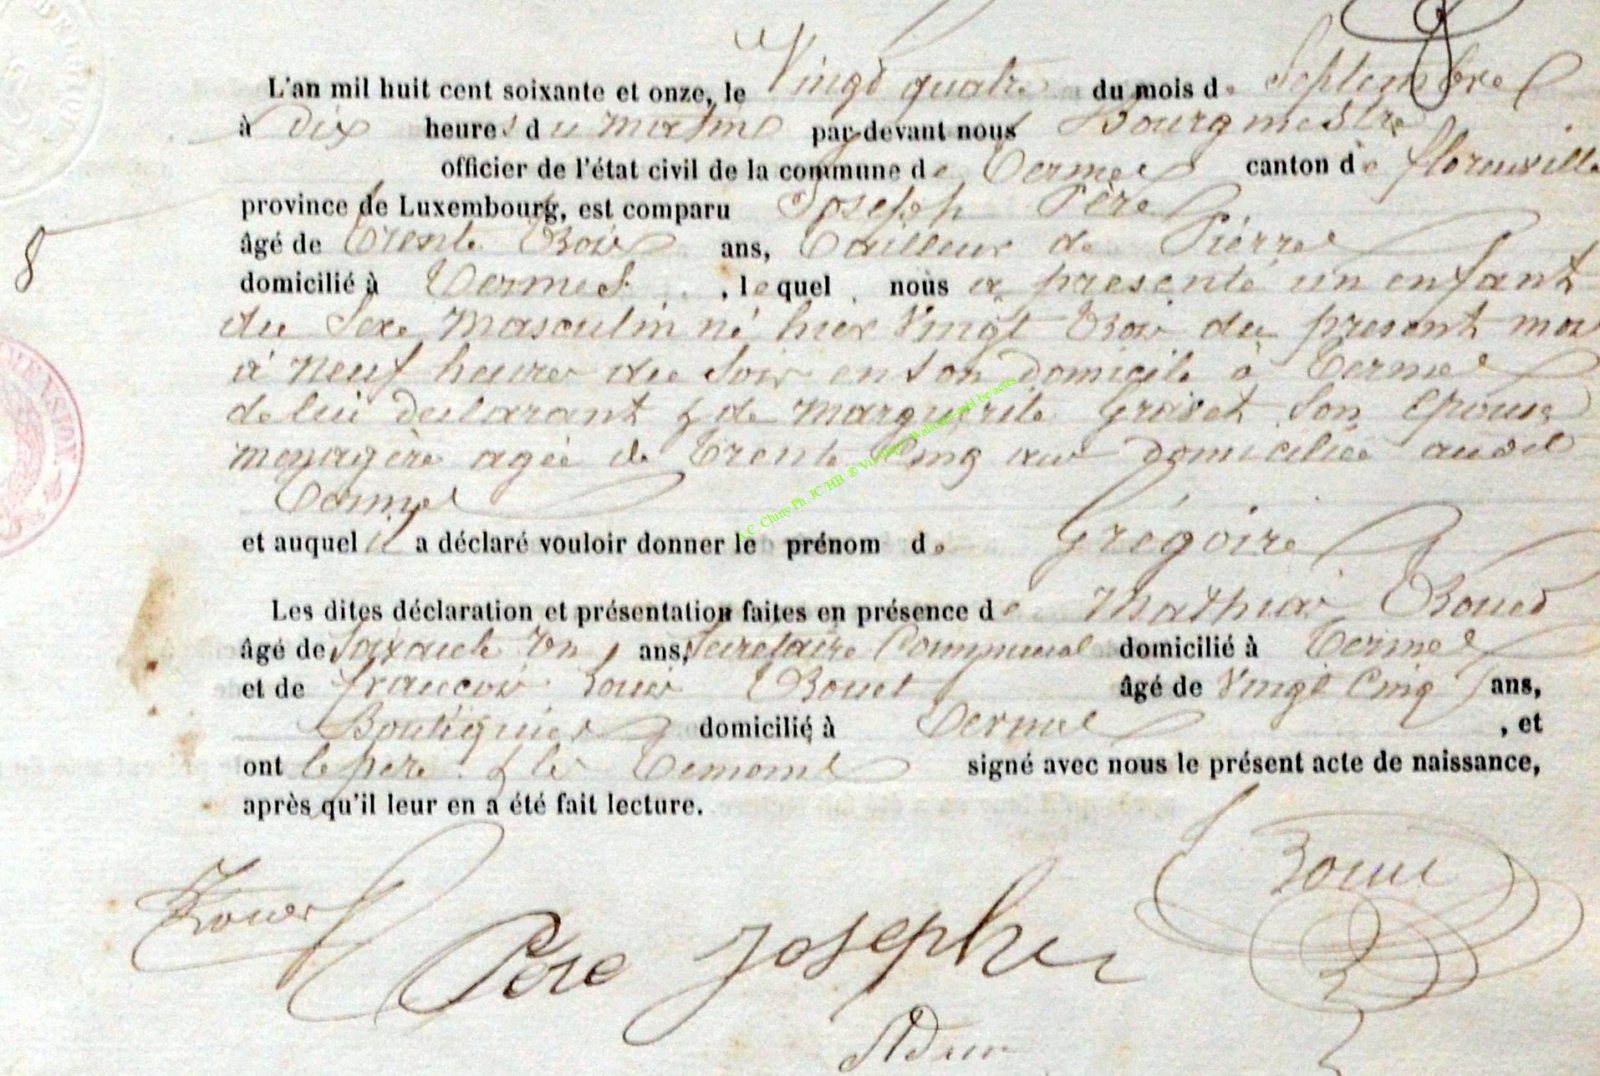 L'an mil huit cent soixante et onze, le Vingt quatre du mois de Septembre
à Dix heures du matin par devant nous Bourgmestre
officier de l'état civil de la commune de Termes canton de florenville
province de Luxembourg, est comparu Joseph Père
âgé de Trente Trois ans, Tailleur de Pierres
domicilié à Termes, lequel nous a présenté un enfant
du Sexe Masculin né hier Vingt Trois du présent mois
à neuf heures du Soir en son Domicile à Termes
de lui declarant & de Marguerite Groset Son Epouse
menagère agée de Trente Cinq ans domiciliée audit
Termes
et auquel il a déclaré vouloir donner le prénom de Grégoire
Les dites déclaration et présentation faites en présence de Mathias
âgé de Soixante Un ans, Secrétaire Communal domicilié à Termes
et de françois Louis âgé de Vingt Cinq ans,
Boutiquier domicilié à Termes, et
ont le père & les Temoins signé avec nous le présent acte de naissance,
après qu'il leur en a été fait lecture.
Père Joseph
8